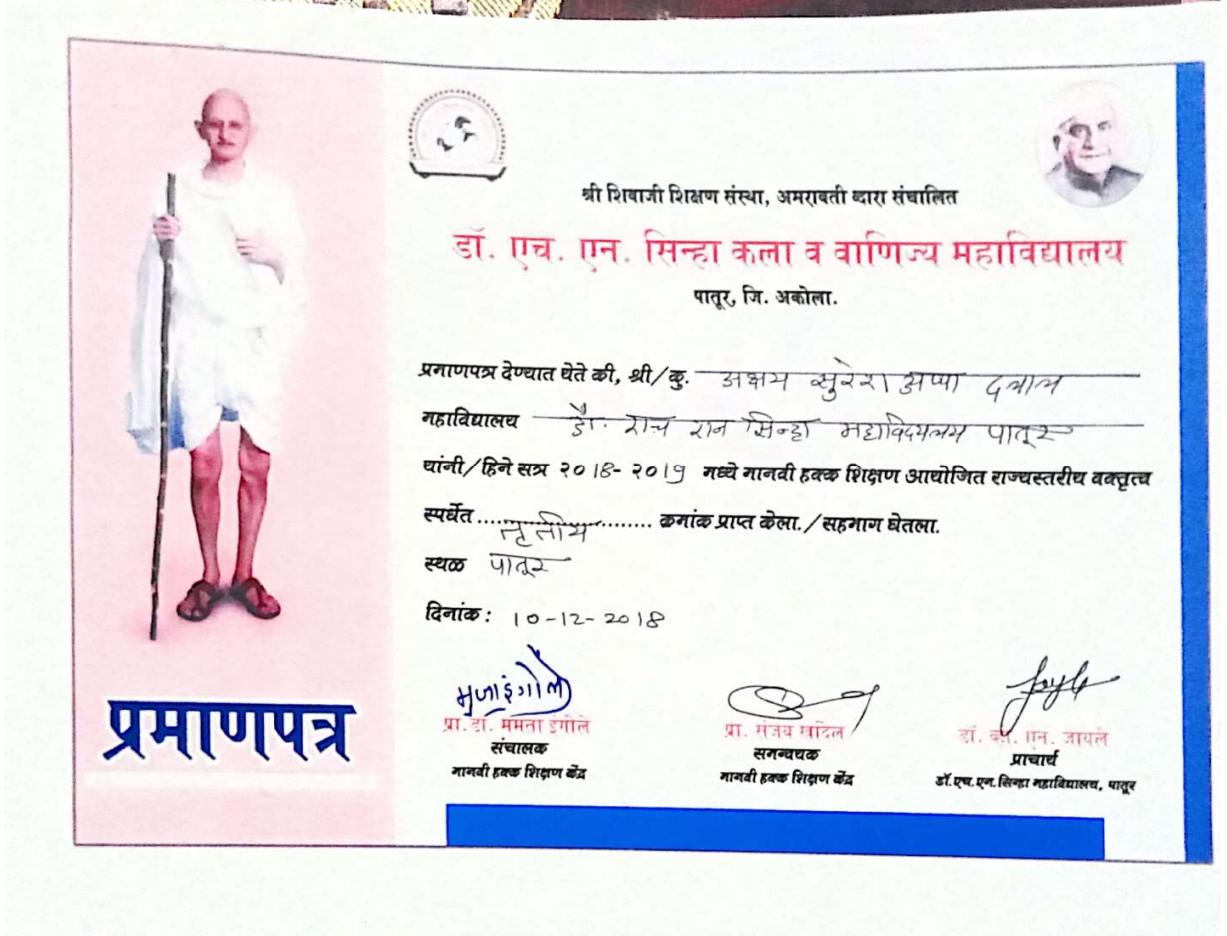 श्री शिवाजी शिक्षण संस्था, अमरावती व्दारा संचालित
डॉ. एच. एन. सिन्हा कला व वाणिज्य महाविद्यालय
पातूर, जि. अकोला.
प्रमाणपत्र देण्यात येते की, श्री/कु. अक्षय सुरेश अप्पा दलाल
महाविद्यालय डॉ. एच एन सिन्हा महाविद्यालय पातूर
यांनी/हिने सत्र २०18-२०19 मध्ये मानवी हक्क शिक्षण आयोजित राज्यस्तरीय वक्तृत्व
स्पर्धेत ......तृतीय......... कमांक प्राप्त केला./सहभाग घेतला.
स्थळ पातूर
दिनांक: 10-12-2018
प्रमाणपत्र
प्रा. डॉ. ममता इंगोले
संचालक
मानवी हक्क शिक्षण केंद्र
प्रा. संजय खांदेल
समन्वयक
मानवी हक्क शिक्षण केंद्र
डॉ. एन. जायले
प्राचार्य
डॉ.एच.एन.सिन्हा महाविद्यालय, पातूर